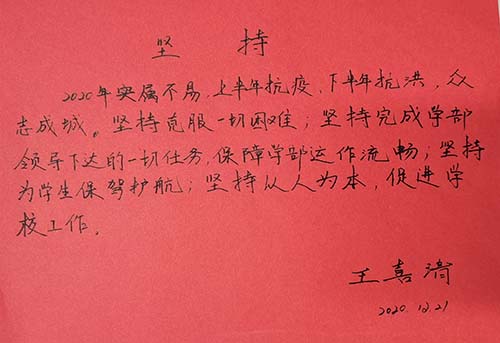 坚 持
2020年实属不易，上半年抗疫，下半年抗洪，众
志成城。坚持克服一切困难；坚持完成学部
领导下达的一切任务，保障学部运作流畅；坚持
为学生保驾护航；坚持以人为本，促进学
校工作。
王喜漪
2020.12.21